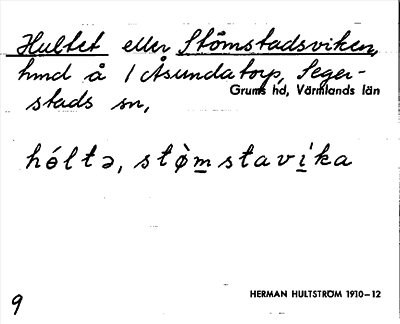 Hultet eller Stömstadsviken,
hmd å 1 Åsundatorp, Seger-
stads sn,
Grums hd, Värmlands län
hóltə, stø̀mstavíka
9
HERMAN HULTSTRÖM 1910–12